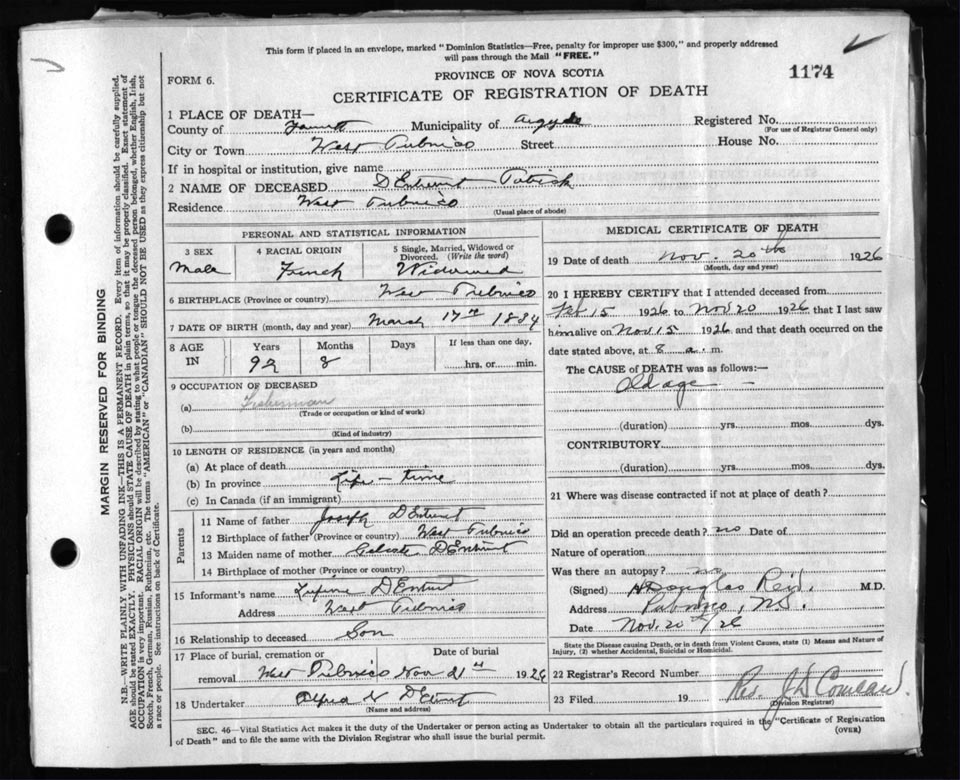 This form if placed in an envelope, marked "Dominion Statistics—Free, penalty for improper use $300," and properly addressed
will pass through the Mail "FREE."
PROVINCE OF NOVA SCOTIA
FORM 6.
1174
CERTIFICATE OF REGISTRATION OF DEATH
1 PLACE OF DEATH—
County of Municipality of Argyle Registered No.
(For use of Registrar General only)
City or Town West Pubnico Street House No.
If in hospital or institution, give name
2 NAME OF DECEASED D'Entremont
Residence West Pubnico
(Usual place of abode)
PERSONAL AND STATISTICAL INFORMATION
3 SEX 4 RACIAL ORIGIN 5 Single, Married, Widowed or
Divorced. (Write the word)
Male French Widowed
6 BIRTHPLACE (Province or country) West Pubnico
7 DATE OF BIRTH (month, day and year) March 17th
8 AGE
IN
Years Months Days If less than one day,
92 8 hrs. or min.
9 OCCUPATION OF DECEASED
(a) Fisherman
(Trade or occupation or kind of work)
(b)
(Kind of industry)
10 LENGTH OF RESIDENCE (in years and months)
(a) At place of death
(b) In province Life-time
(c) In Canada (if an immigrant)
Parents
11 Name of father Joseph D'Entremont
12 Birthplace of father (Province or country) West Pubnico
13 Maiden name of mother D'Entremont
14 Birthplace of mother (Province or country)
15 Informant's name D'Entremont
Address West Pubnico
16 Relationship to deceased Son
17 Place of burial, cremation or Date of burial
removal West Pubnico Nov 21st 1926
18 Undertaker Alfred N D'Entremont
(Name and address)
MEDICAL CERTIFICATE OF DEATH
19 Date of death Nov. 20th 1926
(Month, day and year)
20 I HEREBY CERTIFY that I attended deceased from
Feb 15 1926 to Nov 20 1926 that I last saw
him alive on Nov 15 1926 and that death occurred on
date stated above, at 8 a. m.
The CAUSE of DEATH was as follows:—
Old age
(duration) yrs. mos. dys.
CONTRIBUTORY
(duration) yrs. mos. dys.
21 Where was disease contracted if not at place of death?
Did an operation precede death? no Date of
Nature of operation
Was there an autopsy? no
(Signed) Douglas Reid. M.D.
Address Pubnico, N.S.
Date Nov. 20th/26
State the Disease causing Death, or in death from Violent Causes, state (1) Means and Nature of
Injury, (2) whether Accidental, Suicidal or Homicidal.
22 Registrar's Record Number
23 Filed 19 Rev. J D Comeau.
(Division Registrar)
SEC. 46—Vital Statistics Act makes it the duty of the Undertaker or person acting as Undertaker to obtain all the particulars required in the "Certificate of Registration
of Death" and to file the same with the Division Registrar who shall issue the burial permit.
(OVER)
MARGIN RESERVED FOR BINDING
N.B.—WRITE PLAINLY WITH UNFADING INK—THIS IS A PERMANENT RECORD. Every item of information should be carefully supplied.
AGE should be stated EXACTLY. PHYSICIANS should STATE CAUSE OF DEATH in plain terms, so that it may be properly classified. Exact statement of
OCCUPATION is very important. RACIAL ORIGIN will be described by stating to what people or tongue the deceased person belonged, whether English, Irish,
Scotch, French, German, Russian, Ruthenian, etc. The terms "AMERICAN" or "CANADIAN" SHOULD NOT BE USED as they express citizenship but not
a race or people. See instructions on back of Certificate.